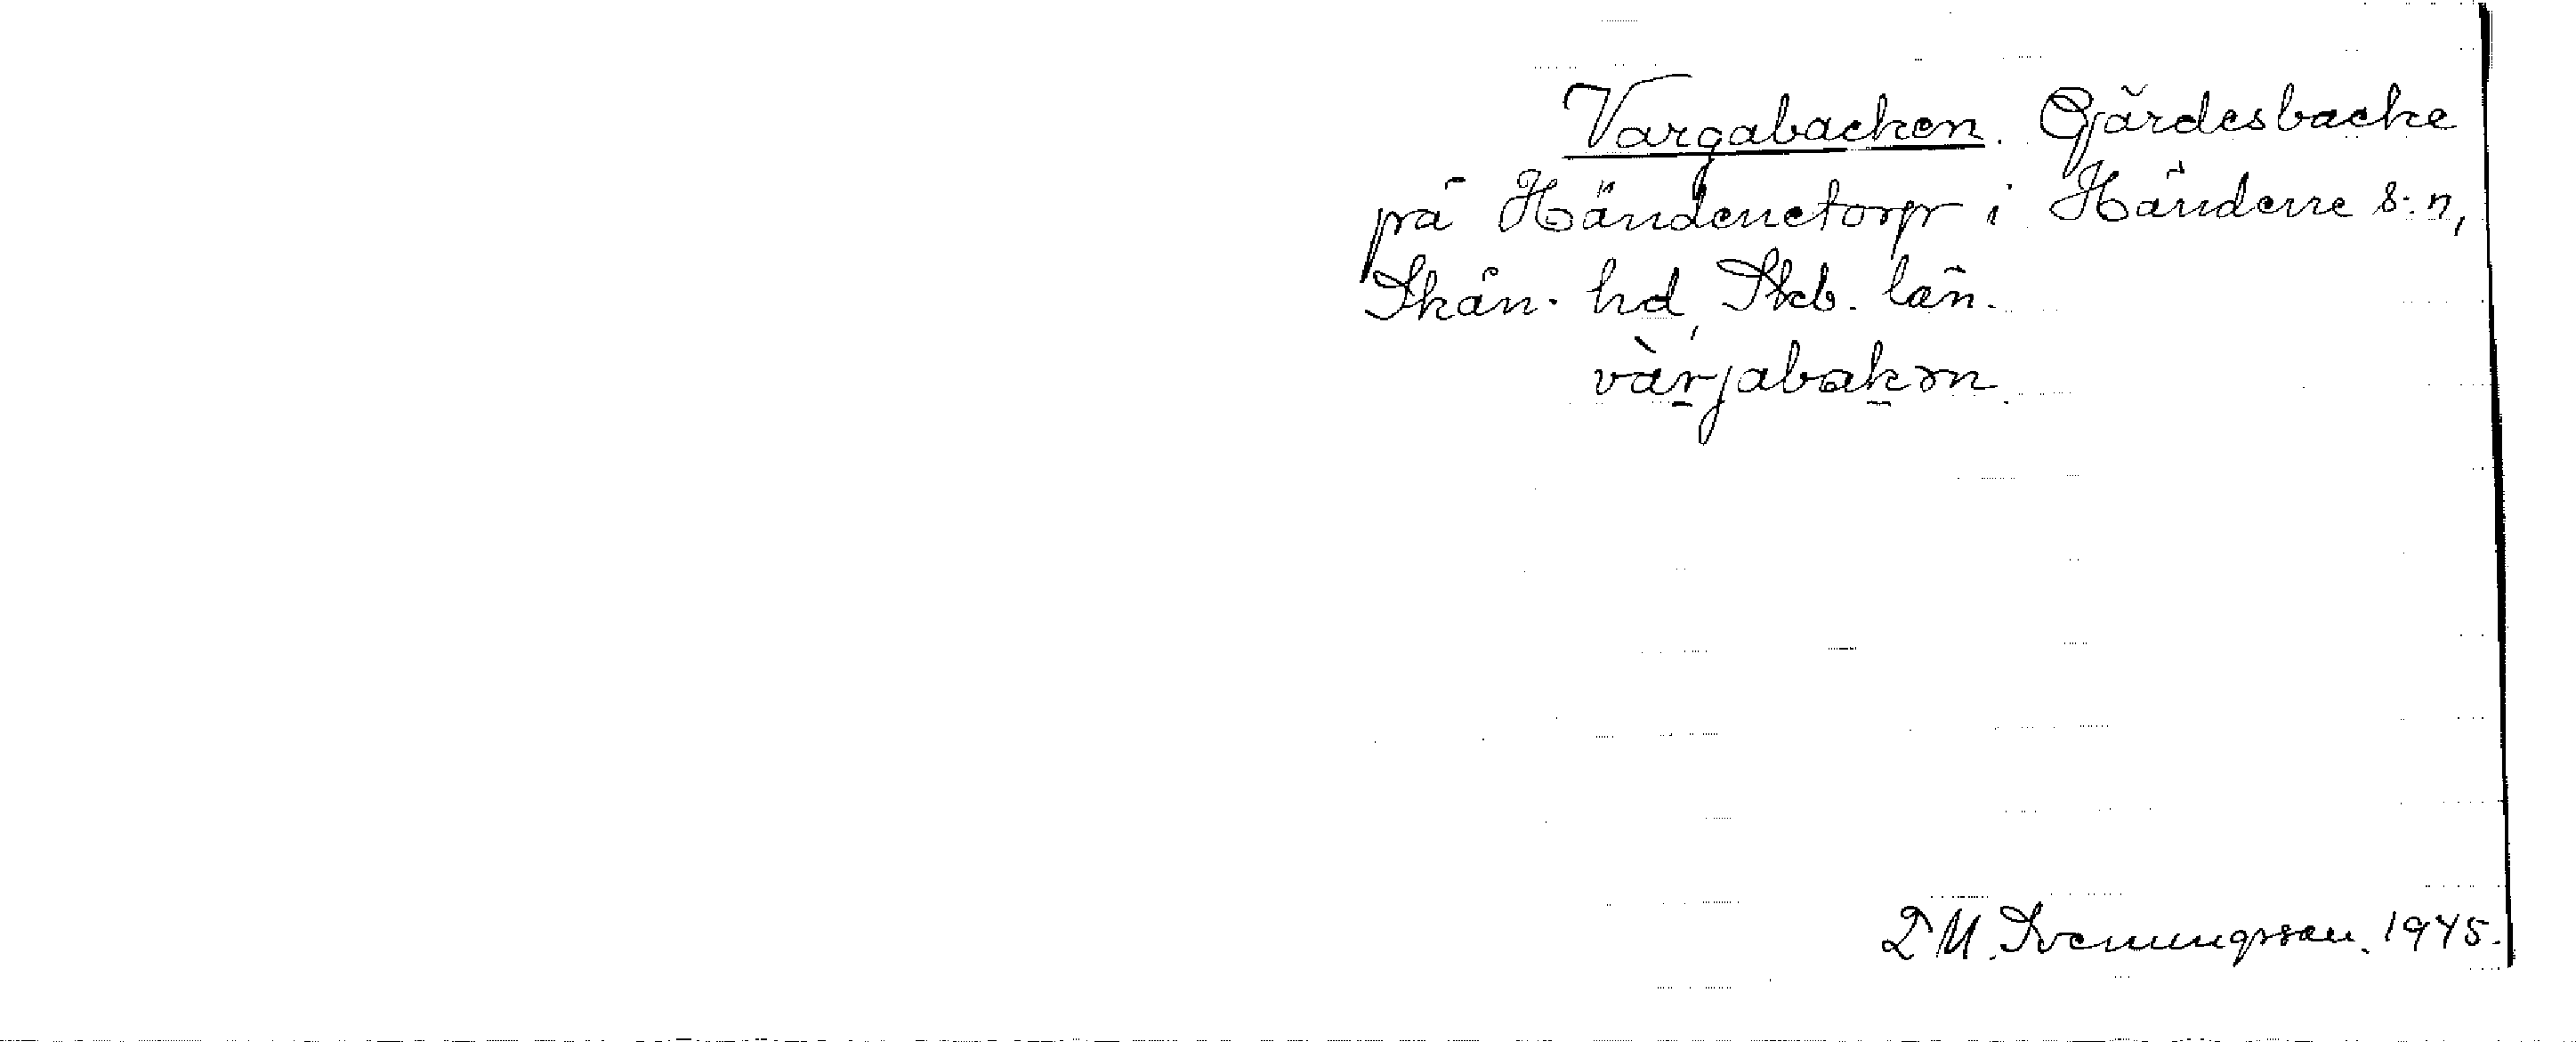 Vargabacken. Gjärdesbacke
på Händenetorp i Händene s:n,
Skån. hd, Skb. län.
värjabakən
D M. Svenungsson. 1945.